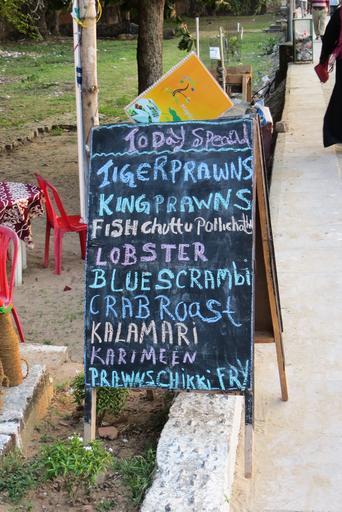 TODAY Special
TIGERPRAWNS
KING PRAWNS
FISH chuttu Pollichath
LOBSTER
BLUESCRAMBi
CRAB Roast
KALAMARi
KARIMEEN
PRAWNSCHIKKi FRY